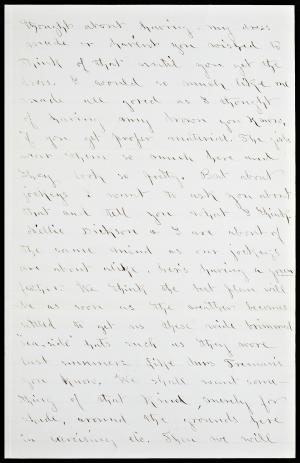 thought about having my dress
made or haven't you wished to
think of that until you get the
dress. I would so much like one
made all gored as I thought
of having my brown you know,
if you get proper material. The
wear them so much here and
they look so pretty. But about
jockeys I want to ask you about
that and tell you what I think
Millie Dickson & I are about of
the same mind as our jockeys
are about alike, hers having a green
feather. We think the best plan will
be as soon as the weather becomes
settled to get us these wide brimmed
"sea-side" hats such as they wore
last summer like Mrs Freman's
you know. We shall want some-
thing of that kind, merely for
shade, around the grounds here
in exercising etc. Then we will